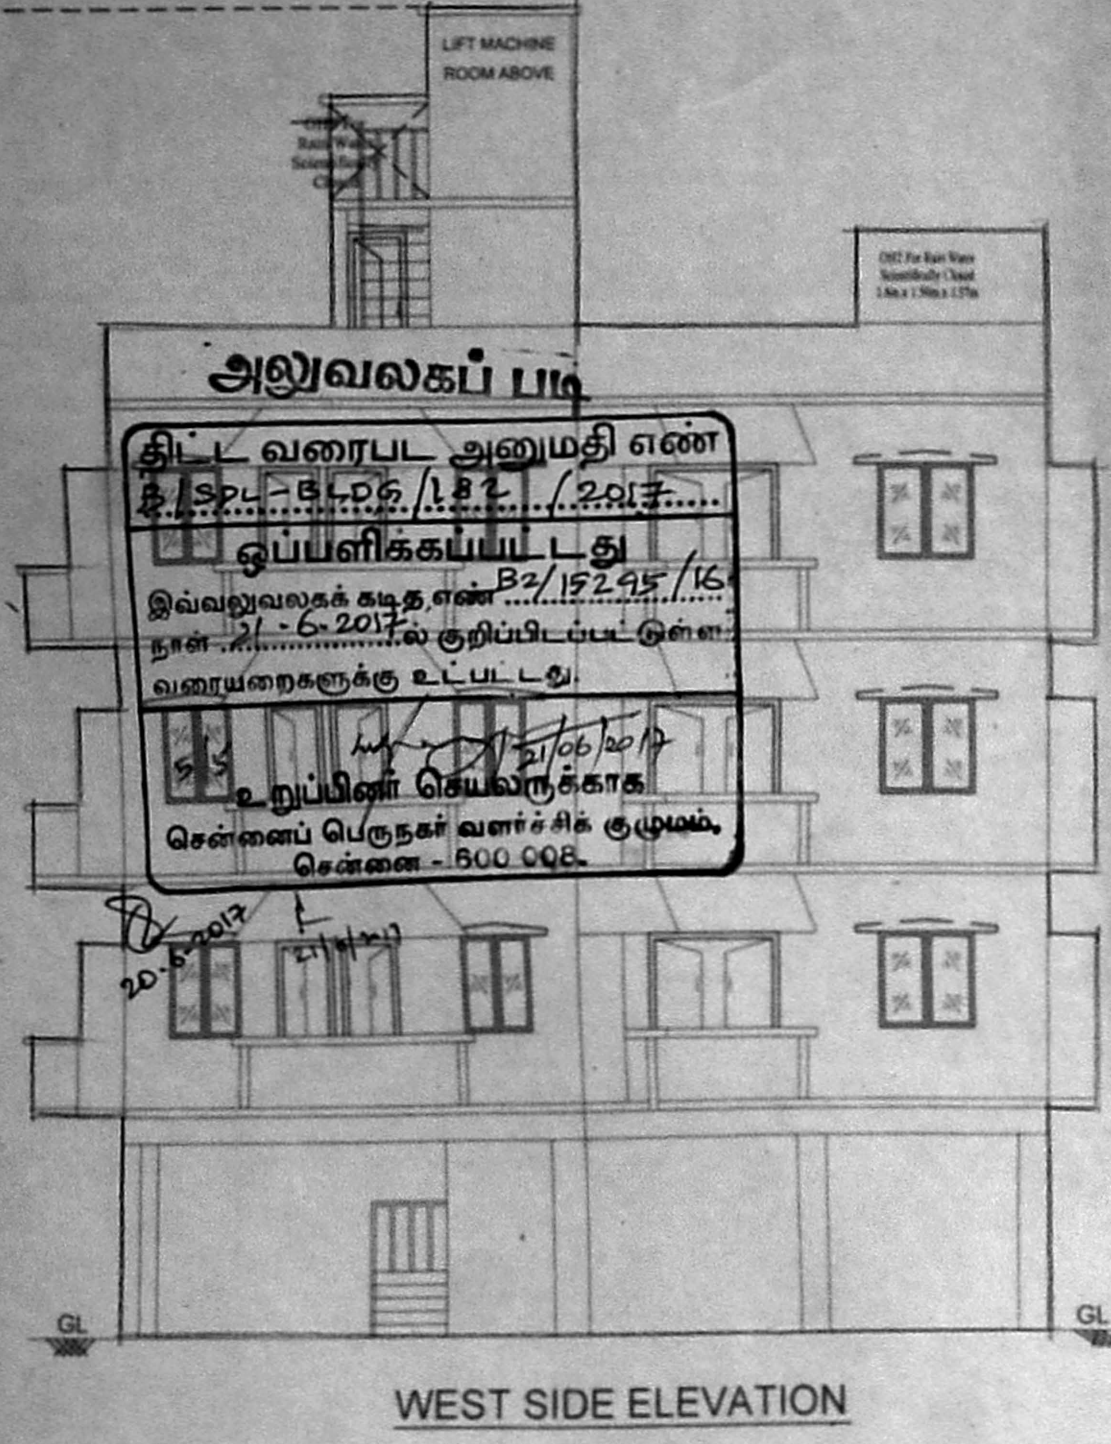 LIFT MACHINE
ROOM ABOVE
OHT For
Rain Water
Scientifically
Closed
OHT For Rain Water
Scientifically Closed
1.50m x 1.57m
அலுவலகப் படி
திட்ட வரைபட அனுமதி எண்
B/SPL-BLDG/182/2017
ஒப்பளிக்கப்பட்டது
இவ்வலுவலகக் கடித எண் B2/15295/16
நாள் 21-6-2017 ல் குறிப்பிடப்பட்டுள்ள
வரையறைகளுக்கு உட்பட்டது.
21/06/2017
உறுப்பினர் செயலருக்காக
சென்னைப் பெருநகர் வளர்ச்சிக் குழுமம்,
சென்னை - 600 008.
20-6-2017
21/6/2017
GL
GL
WEST SIDE ELEVATION